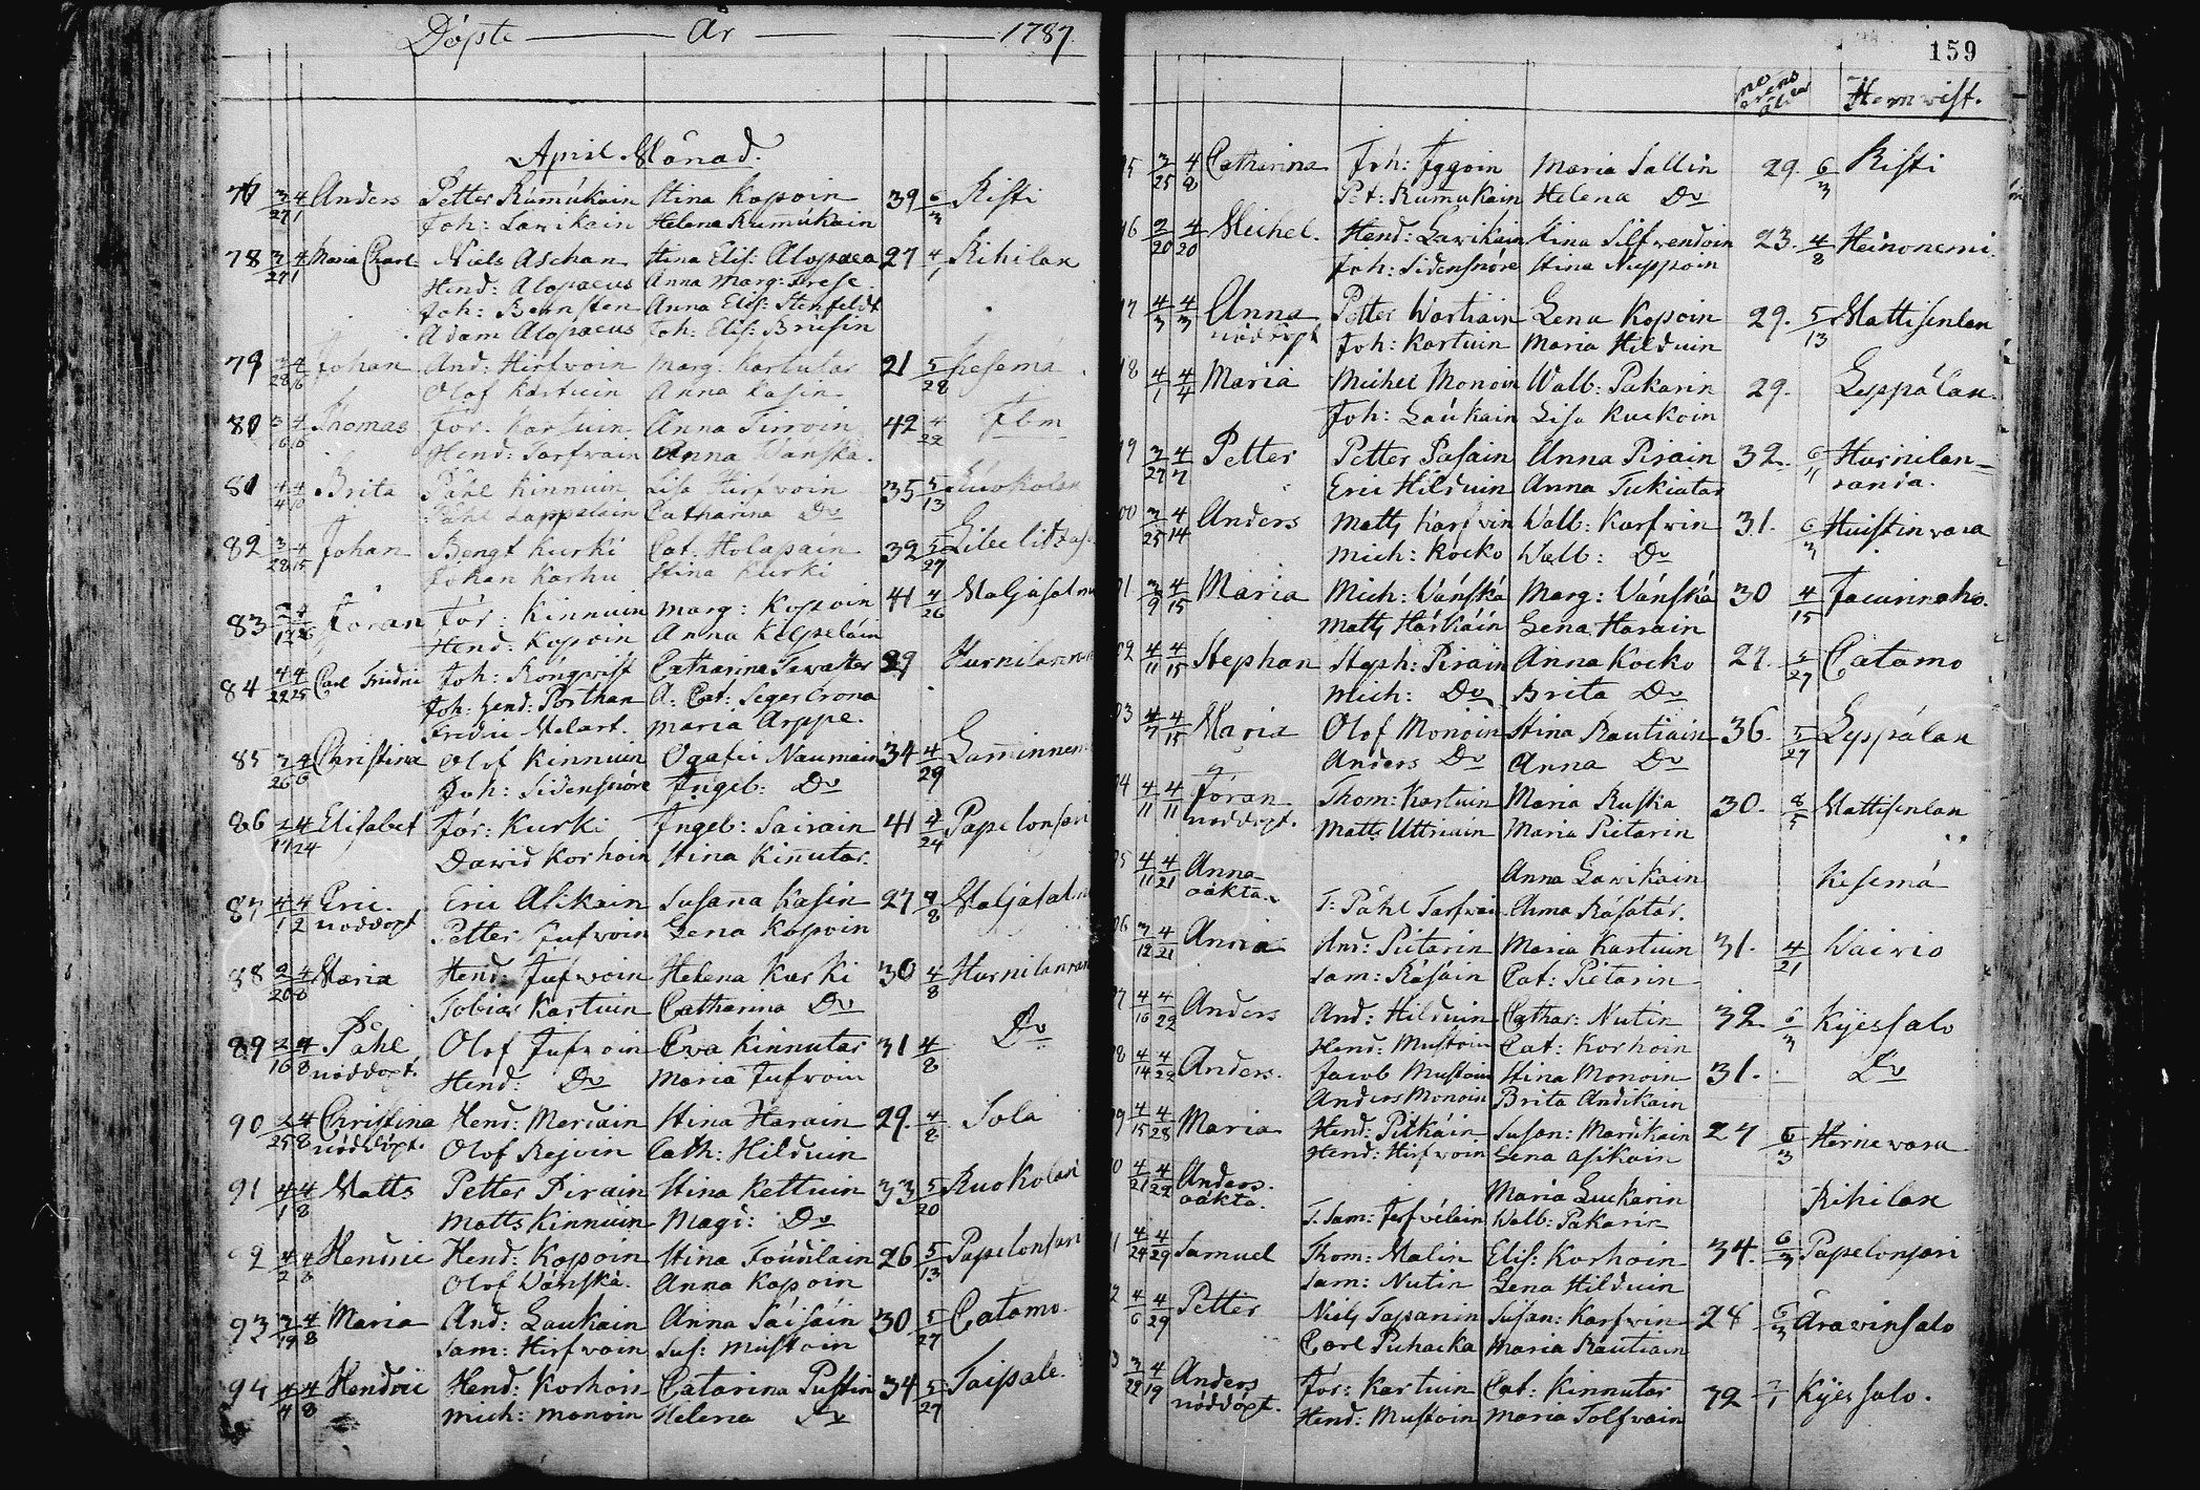 Döpte År 1787
April Månad.
77 3/27 4/1 Anders Petter Rumukain Stina Kopoin 39 6/3 Risti
Joh: Lavikain Helena Rumukain
78 3/27 4/1 Maria Charl. Niels Aschan Stina Elis: Alopaea 27 4/1 Kihilax
Hend: Alopaeus Anna Marg: Frese
Joh: Bernsten Anna Elis: Stenfeldt
Adam Alopaeus Joh: Elis: Brusin
79 3/28 4/6 Johan And: Hirfwoin Marg: Kartutar 21 5/28 Kesemä
Olof Kartuin Anna Kasin
80 3/6 4/6 Thomas Jör: Kartuin Anna Tirroin 42 4/22 Jbm
Hend: Tarfwain Anna Wänskä.
81 4/4 Brita Påhl Kinnuin Lisa Hirfwoin 35 5/13 Ruokolax
Påhl Lappalain Catharina Do
82 3/28 4/15 Johan Bengt Kurki Cat: Holapain 32 5/27 Libelitz
Johan Karhu Stina Kurki
83 Jöran Jör: Kinnuin Marg: Kopoin 41 4/26 Maljasalmi
Hend: Kopoin Anna Kelpeläin
84 4/22 4/25 Carl Fridric Joh: Röngwist Catharina Tawaster 29 Hurnilanranta
Joh: Hend: Porthan A: Cat: Segercrona
Fridric Melart. Maria Arppe.
85 3/26 4/6 Christina Olof Kinnuin Ogafei Naumain 34 4/29 Laminnemi
Joh: Sidensnöre Ingeb: Do
86 3/17 4/24 Elisabet Jör: Kurki Ingeb: Sairain 41 4/24 Papelonsari
David Korhoin Stina Kinnutar.
87 4/1 4/2 Eric. Eric Asikain Susanna Kasin 27 4/8 Maljasalmi
nöddöpt Petter Jufwoin Lena Kopoin
88 2/20 4/8 Maria Hend: Jufwoin Helena Kurki 30 4/8 Hurnilanran
Tobias Kartuin Catharina Do
89 2/16 4/8 Påhl Olof Jufwoin Eva Kinnutar 31 4/8 Do
nöddöpt. Hend: Do Maria Jufwoin
90 2/25 4/8 Christina Hend: Meriain Stina Harain 29. 4/8 Sola
nöddöpt. Olof Rejvin Cath: Hilduin
91 4/1 4/8 Matts Petter Pirain Stina Kettuin 33 5/20 Ruokolax
Matts Kinnuin Magd: Do
92 4/2 4/8 Hendric Hend: Kopoin Stina Toudilain 26 5/13 Papelonsari
Olof Wänskä. Anna Kopoin
93 3/19 4/8 Maria And: Laukain Anna Säisäin 30 5/27 Catamo.
Sam: Hirfwoin Sus: Mustoin
94 4/4 4/8 Hendric Hend: Korhoin Catarina Pustin 34 5/27 Taipale.
Mich: Monoin Helena Do
159
Hemvist.
5 3/25 4/8 Catharina Joh: Iggoin Maria Sallin 29. 6/3 Risti
Pet: Rumukain Helena Do
96 2/20 4/20 Michel. Hend: Lavikain Stina Silfwendoin 23. 4/8 Heinonemi.
Joh: Sidensnöre Stina Nuppoin
7 4/3 4/3 Anna Petter Wortiain Lena Kopoin 29. 5/13 Mattisenlax
nöddöpt Joh: Kartuin Maria Hilduin
8 4/1 4/7 Maria Michel Monoin Walb: Pakarin 29. Leppälax.
Joh: Laukain Lisa Kuckoin
9 3/27 4/7 Petter Petter Pasain Anna Pirain 32. 6/11 Hurnilan-
Eric Hilduin Anna Tukiatar ranta.
00 3/25 4/14 Anders Matts Karfwin Walb: Karfwin 31. 6/3 Huistinvara
Mich: Kocko Walb: Do
01 3/9 4/15 Maria Mich: Wänskä Marg: Wänskä 30 4/15 Jouinnoho.
Matts Härkäin Lena Harain
02 4/11 4/15 Stephan Steph: Pirain Anna Kocko 27. 5/27 Catamo
Mich: Do Brita Do
03 4/7 4/15 Maria Olof Monoin Stina Rautiain 36. 5/27 Leppälax
Anders Do Anna Do
04 4/11 4/11 Jöran Thom: Kartuin Maria Ruska 30. 8/5 Mattisenlax
nöddöpt. Matts Uttriain Maria Pietarin
05 4/11 4/21 Anna Anna Lavikain Kesemä
oäkta. T: Påhl Tarfwain Anna Räsätär.
06 3/12 4/21 Anna And: Pietarin Maria Kartuin 31. 4/21 Wairio
Sam: Räsäin Cat: Pietarin
7 4/16 4/22 Anders And: Hilduin Cathar: Nutin 32. 6/3 Kyessalo
Hend: Mustoin Cat: Korhoin
8 4/14 4/22 Anders. Jacob Mustoin Stina Monoin 31. Do
Anders Monoin Brita Andikain
9 4/15 4/28 Maria Hend: Pitkäin Susan: Mardikain 27 6/3 Hernevara
Hend: Hirfwoin Lena Asikain
0 4/21 4/22 Anders. Maria Luckarin Kihilax
oäkta. T. Sam: Jerfveläin Walb: Pakarin
1 4/24 4/29 Samuel Thom: Malin Elis: Korhoin 34. 6/3 Papelonsari
Sam: Nutin Lena Hilduin
2 4/6 4/29 Petter Niels Tapanin Susan: Karfwin 28 6/3 Aravinsalo
Carl Puhacka Maria Rautiain
3 3/22 4/19 Anders Jör: Kartuin Cat: Kinnutar 32 7/1 Kyessalo.
nöddöpt. Hend: Mustoin Maria Tolfvain